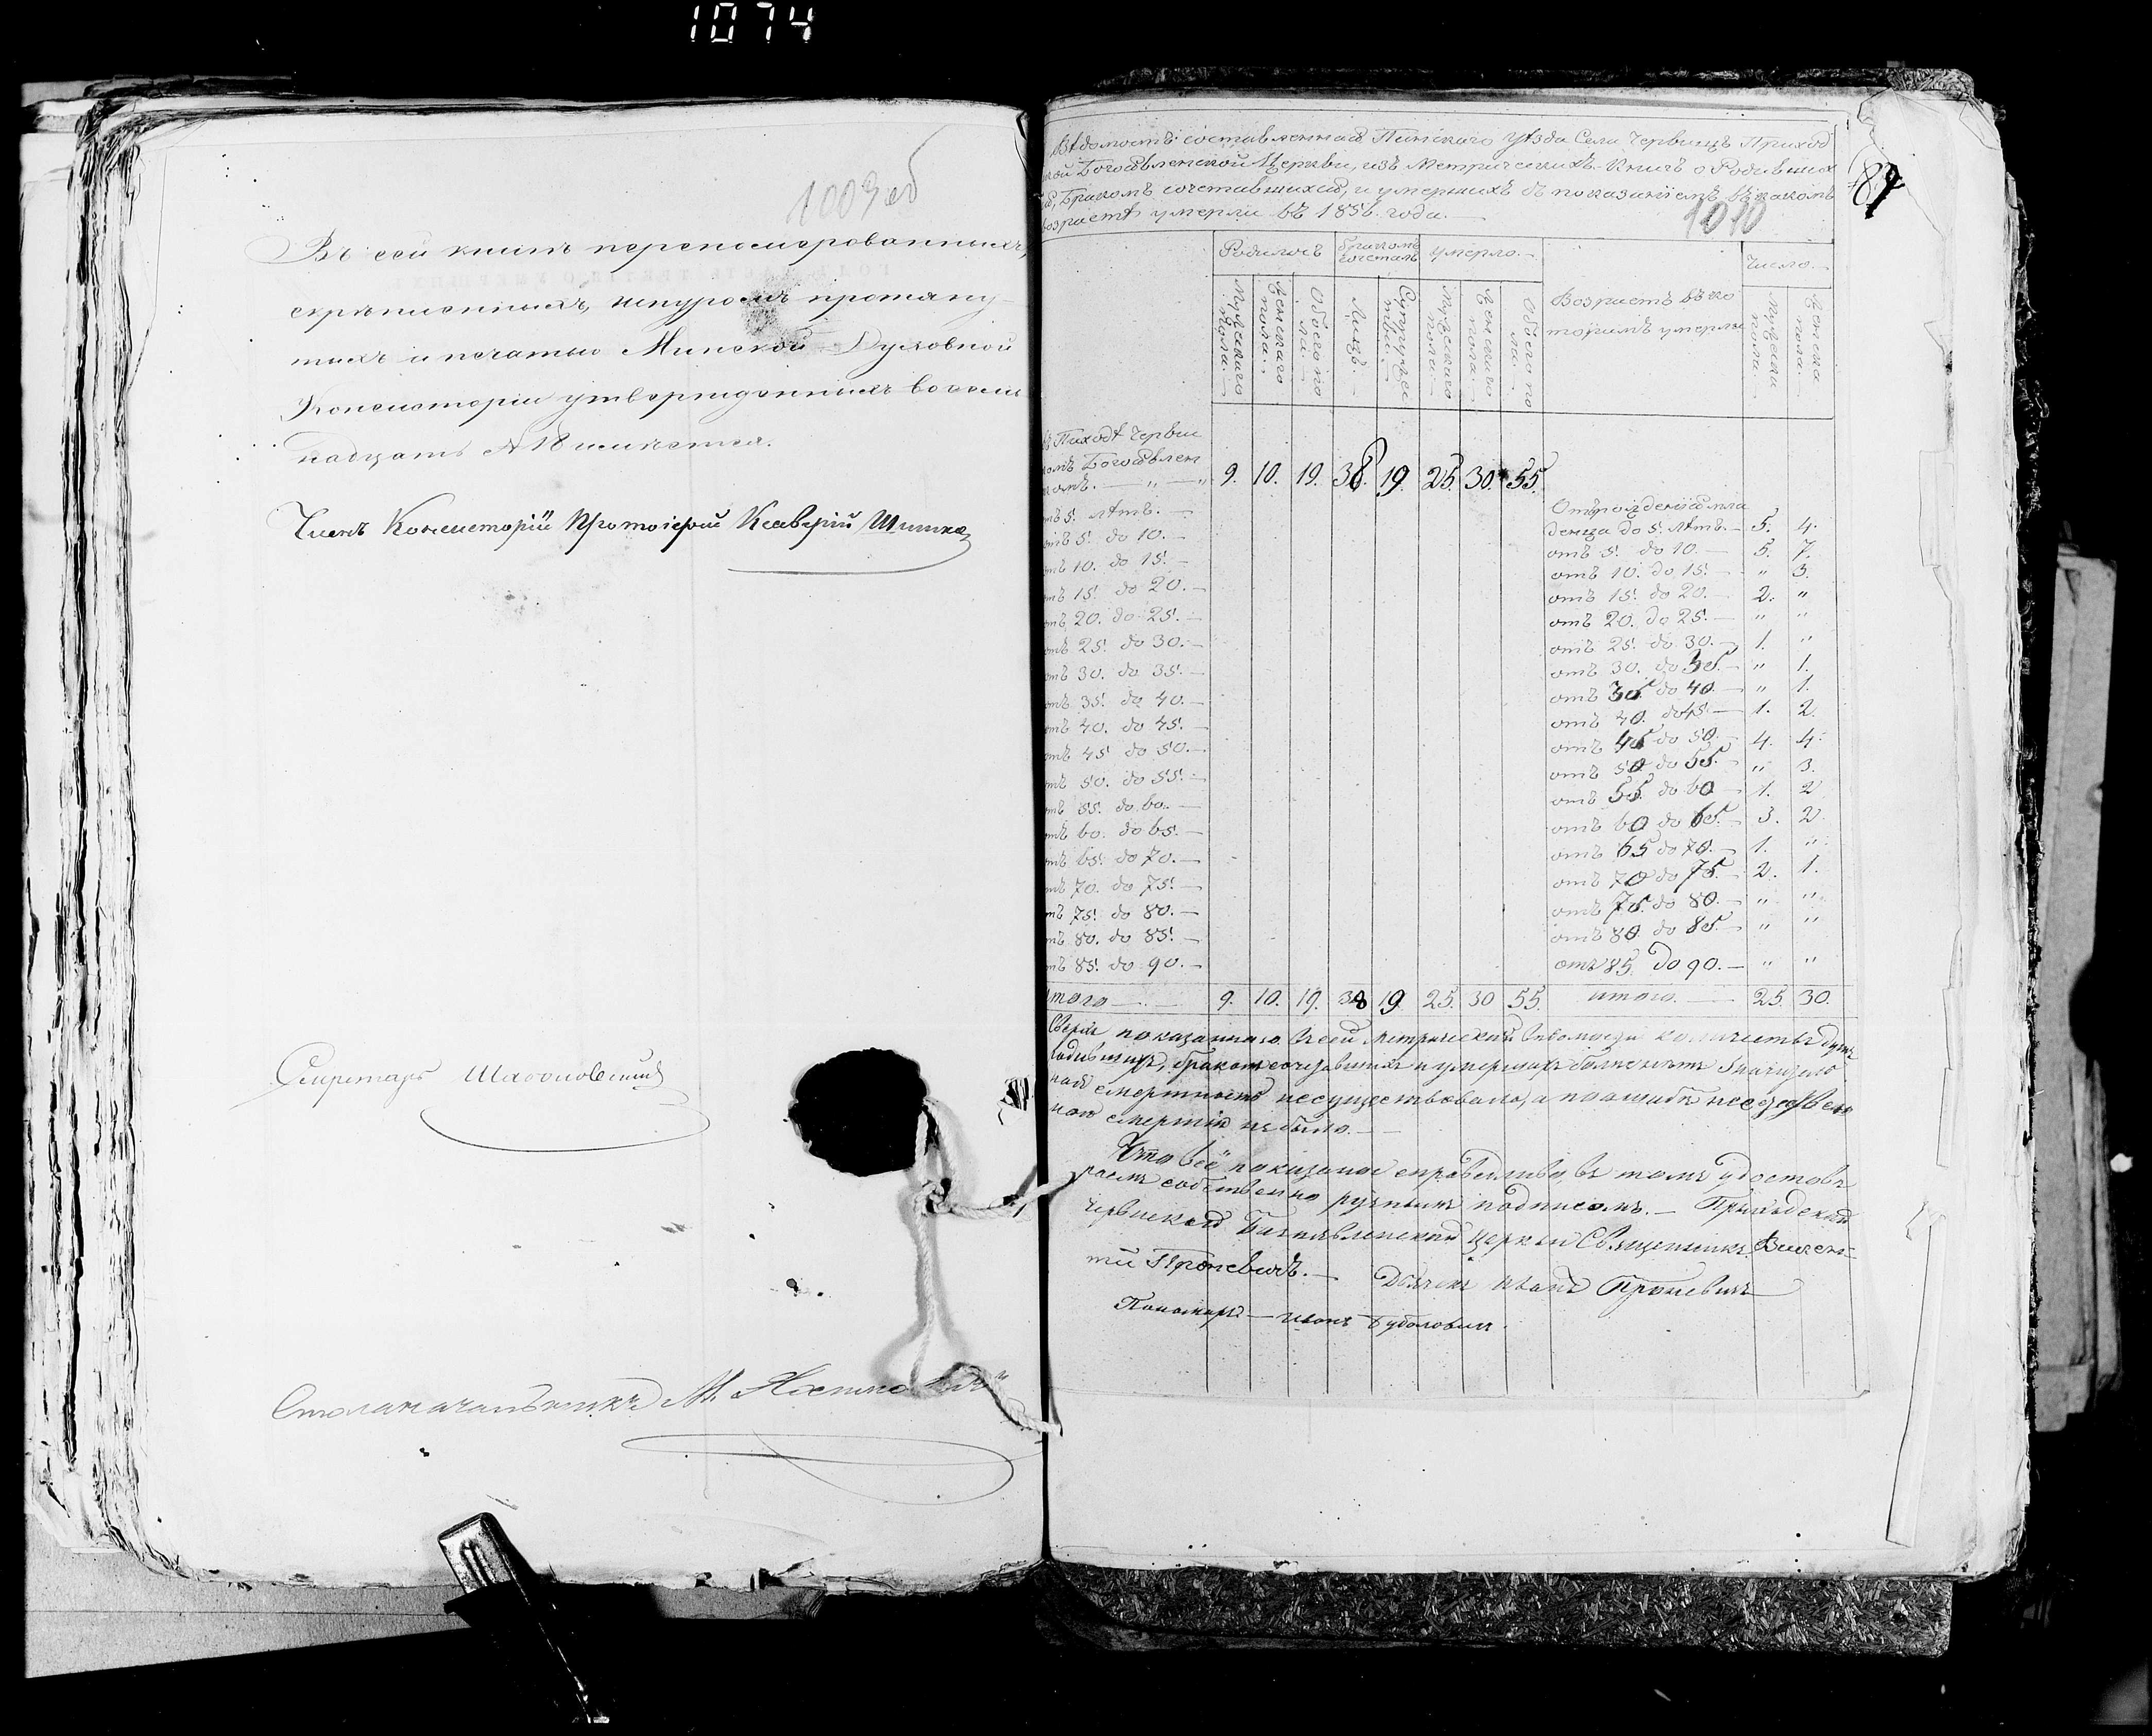 1074
1009 об
Въ сей книгѣ переномерованныхъ,
скрѣпленныхъ, шнуромъ протяну-
тыхъ и печатью Минской Духовной
Консисторіи утвержденныхъ восем
надцать № 18 листовъ.
Членъ Консисторіи Протоіерей Ксаверій
Секретарь
Столоначальникъ М.
Вѣдомость составленная Пинского Уѣзда Села Червищъ Приход
ской Богоявленской Церкви, изъ Метрическихъ Книгъ о Родивших
ся, Бракомъ сочетавшихся, и умершихъ съ показаніемъ въ какомъ
возрастѣ умерли въ 1856. года.
1010
89
Родилось Бракомъ сочетал Умерло. Возрастъ въ ко торомъ умерли Число.
Мужескаго пола. Женскаго пола. Обоего по ла. Лицъ. Супружес твъ. Мужескаго пола. Женскаго пола. Обоего по ла. Мужеска пола. Женска пола.
ъ Приходѣ Черви
комъ Богоявлен
комъ. — „ — „ 9. 10. 19. 38. 19. 25. 30. 55.
тъ 5. лѣтъ. — Отъ рожденія мла
денца до 5. лѣтъ. — 5. 4.
отъ 5. до 10. — отъ 5. до 10. — 5. 7.
отъ 10. до 15. — отъ 10. до 15. — „ 3.
отъ 15. до 20. — отъ 15. до 20. — 2. „
отъ 20. до 25. — отъ 20. до 25. — „ „
отъ 25. до 30. — отъ 25. до 30. — 1. „
отъ 30. до 35. — отъ 30. до 35. — „ 1.
отъ 35. до 40. — отъ 35 до 40. — „ 1.
отъ 40. до 45. — отъ 40. до 45. — 1. 2.
отъ 45 до 50. — отъ 45 до 50. — 4. 4.
отъ 50. до 55. — отъ 50 до 55. — „ 3.
отъ 55. до 60. — отъ 55. до 60 — 1. 2
отъ 60. до 65. — отъ 60 до 65. — 3. 2.
отъ 65. до 70. — отъ 65 до 70. — 1. „
отъ 70. до 75. — отъ 70 до 75. — 2. 1.
тъ 75. до 80. — отъ 75. до 80. — „ „
тъ 80. до 85. — отъ 80. до 85. — „ „
тъ 85. до 90. — отъ 85. до 90. — „ „
Итого — 9. 10. 19. 38 19 25. 30 55. итого. — 25. 30.
Сверхъ показаннаго въ сей метрической вѣдомости количества душъ
родившихъ, бракомъ сочетавшихъ и умершихъ болѣе нѣтъ
смертность несуществовала, а
смертій не было. —
Что всё показаное справедливо, въ томъ удостовѣ
ряемъ собственно ручнымъ подписомъ. — Приходской
Червиской Богоявленской Церкви Священникъ Викен-
тій Проневичъ. — Дьячекъ Иванъ Проневичъ
Пономарь — Иванъ